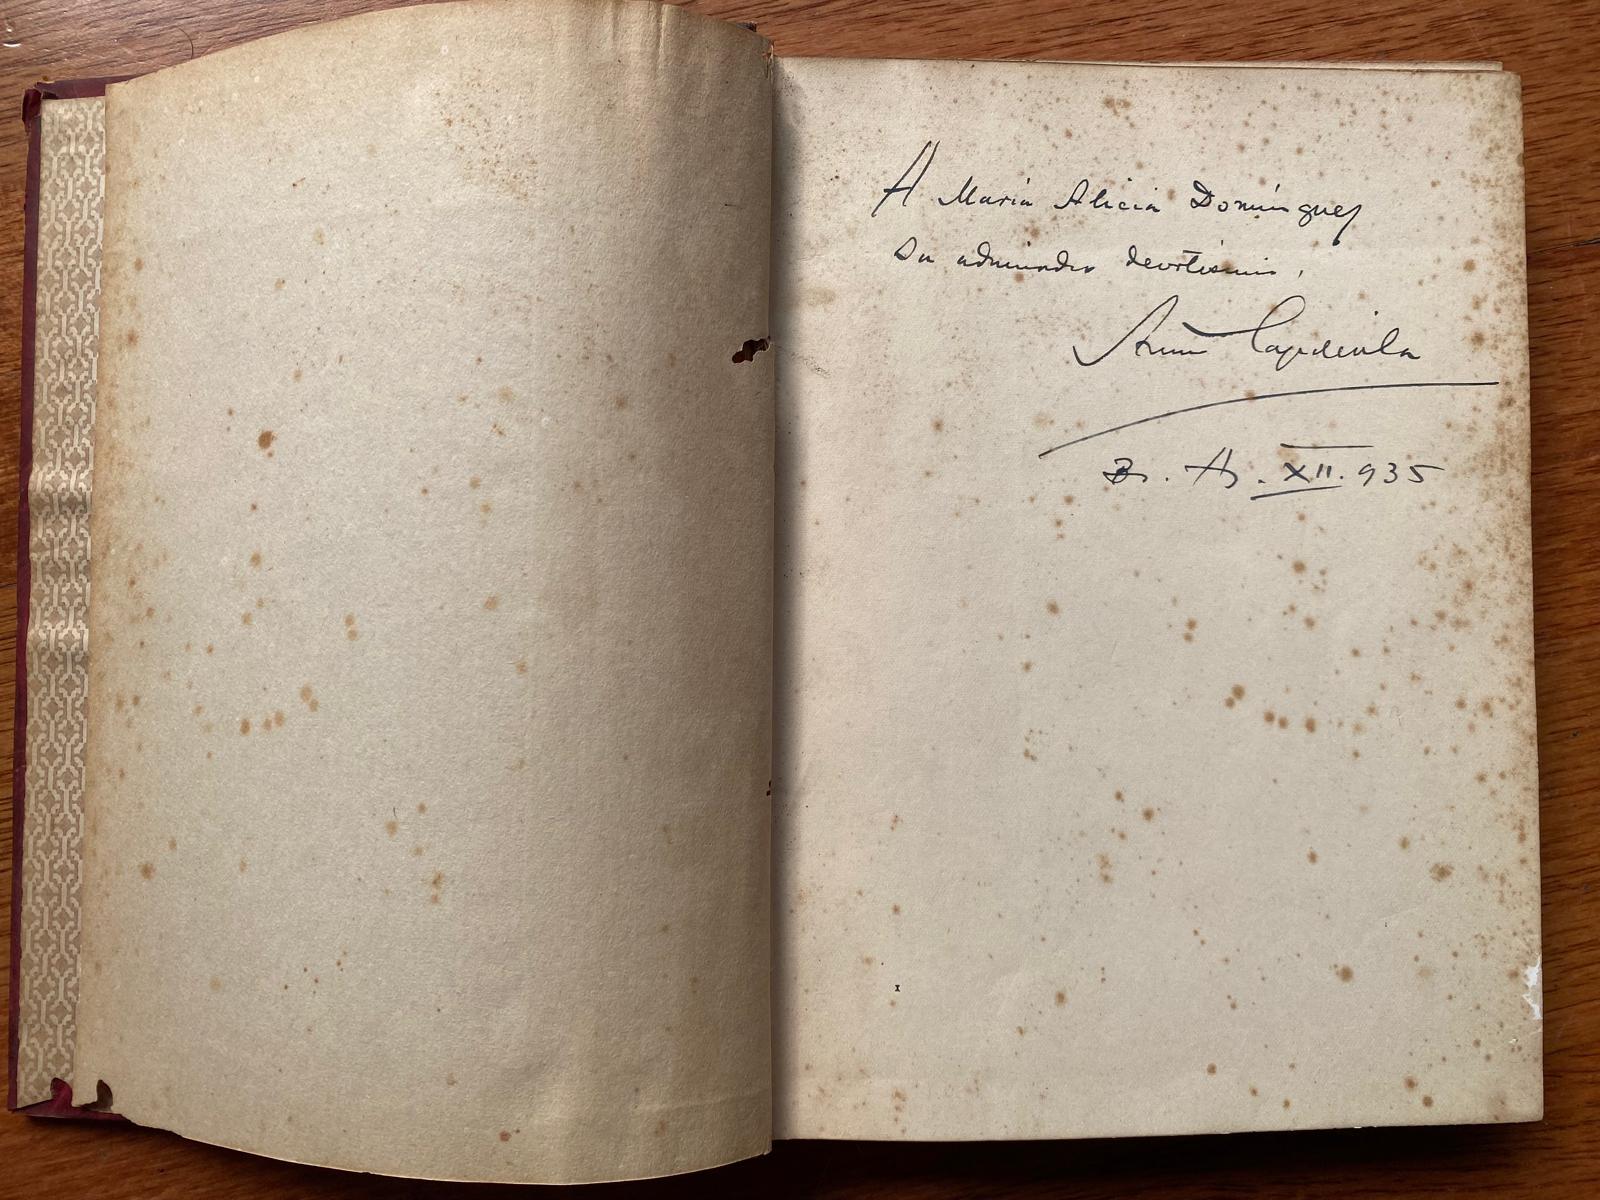 A María Alicia Domínguez
su admirador devotísimo,
Arturo Capdevila
Bs. As. XII. 935
I